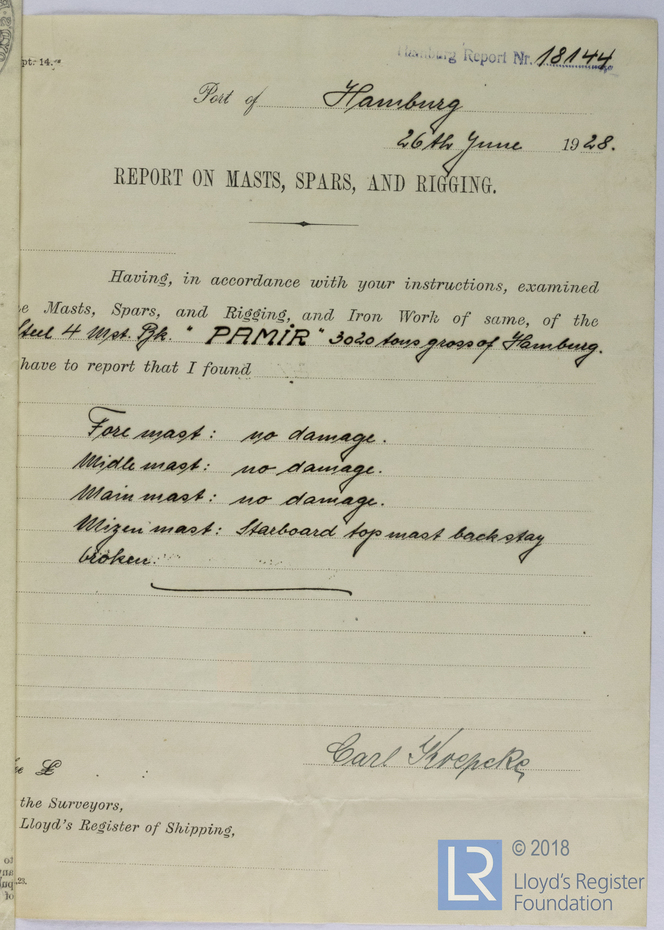 pt. 14.
Hamburg Report Nr. 18144
Port of Hamburg
26th June 1928.
REPORT ON MASTS, SPARS, AND RIGGING.
Having, in accordance with your instructions, examined
e Masts, Spars, and Rigging, and Iron Work of same, of the
steel 4 Mst. Bk. "PAMIR" 3020 tons gross of Hamburg.
have to report that I found
Fore mast: no damage.
Midle mast: no damage.
Main mast: no damage.
Mizen mast: Starboard top mast backstay
broken.
Carl Koepcke
£ :
the Surveyors,
Lloyd's Register of Shipping,
LR
© 2018
Lloyd's Register
Foundation